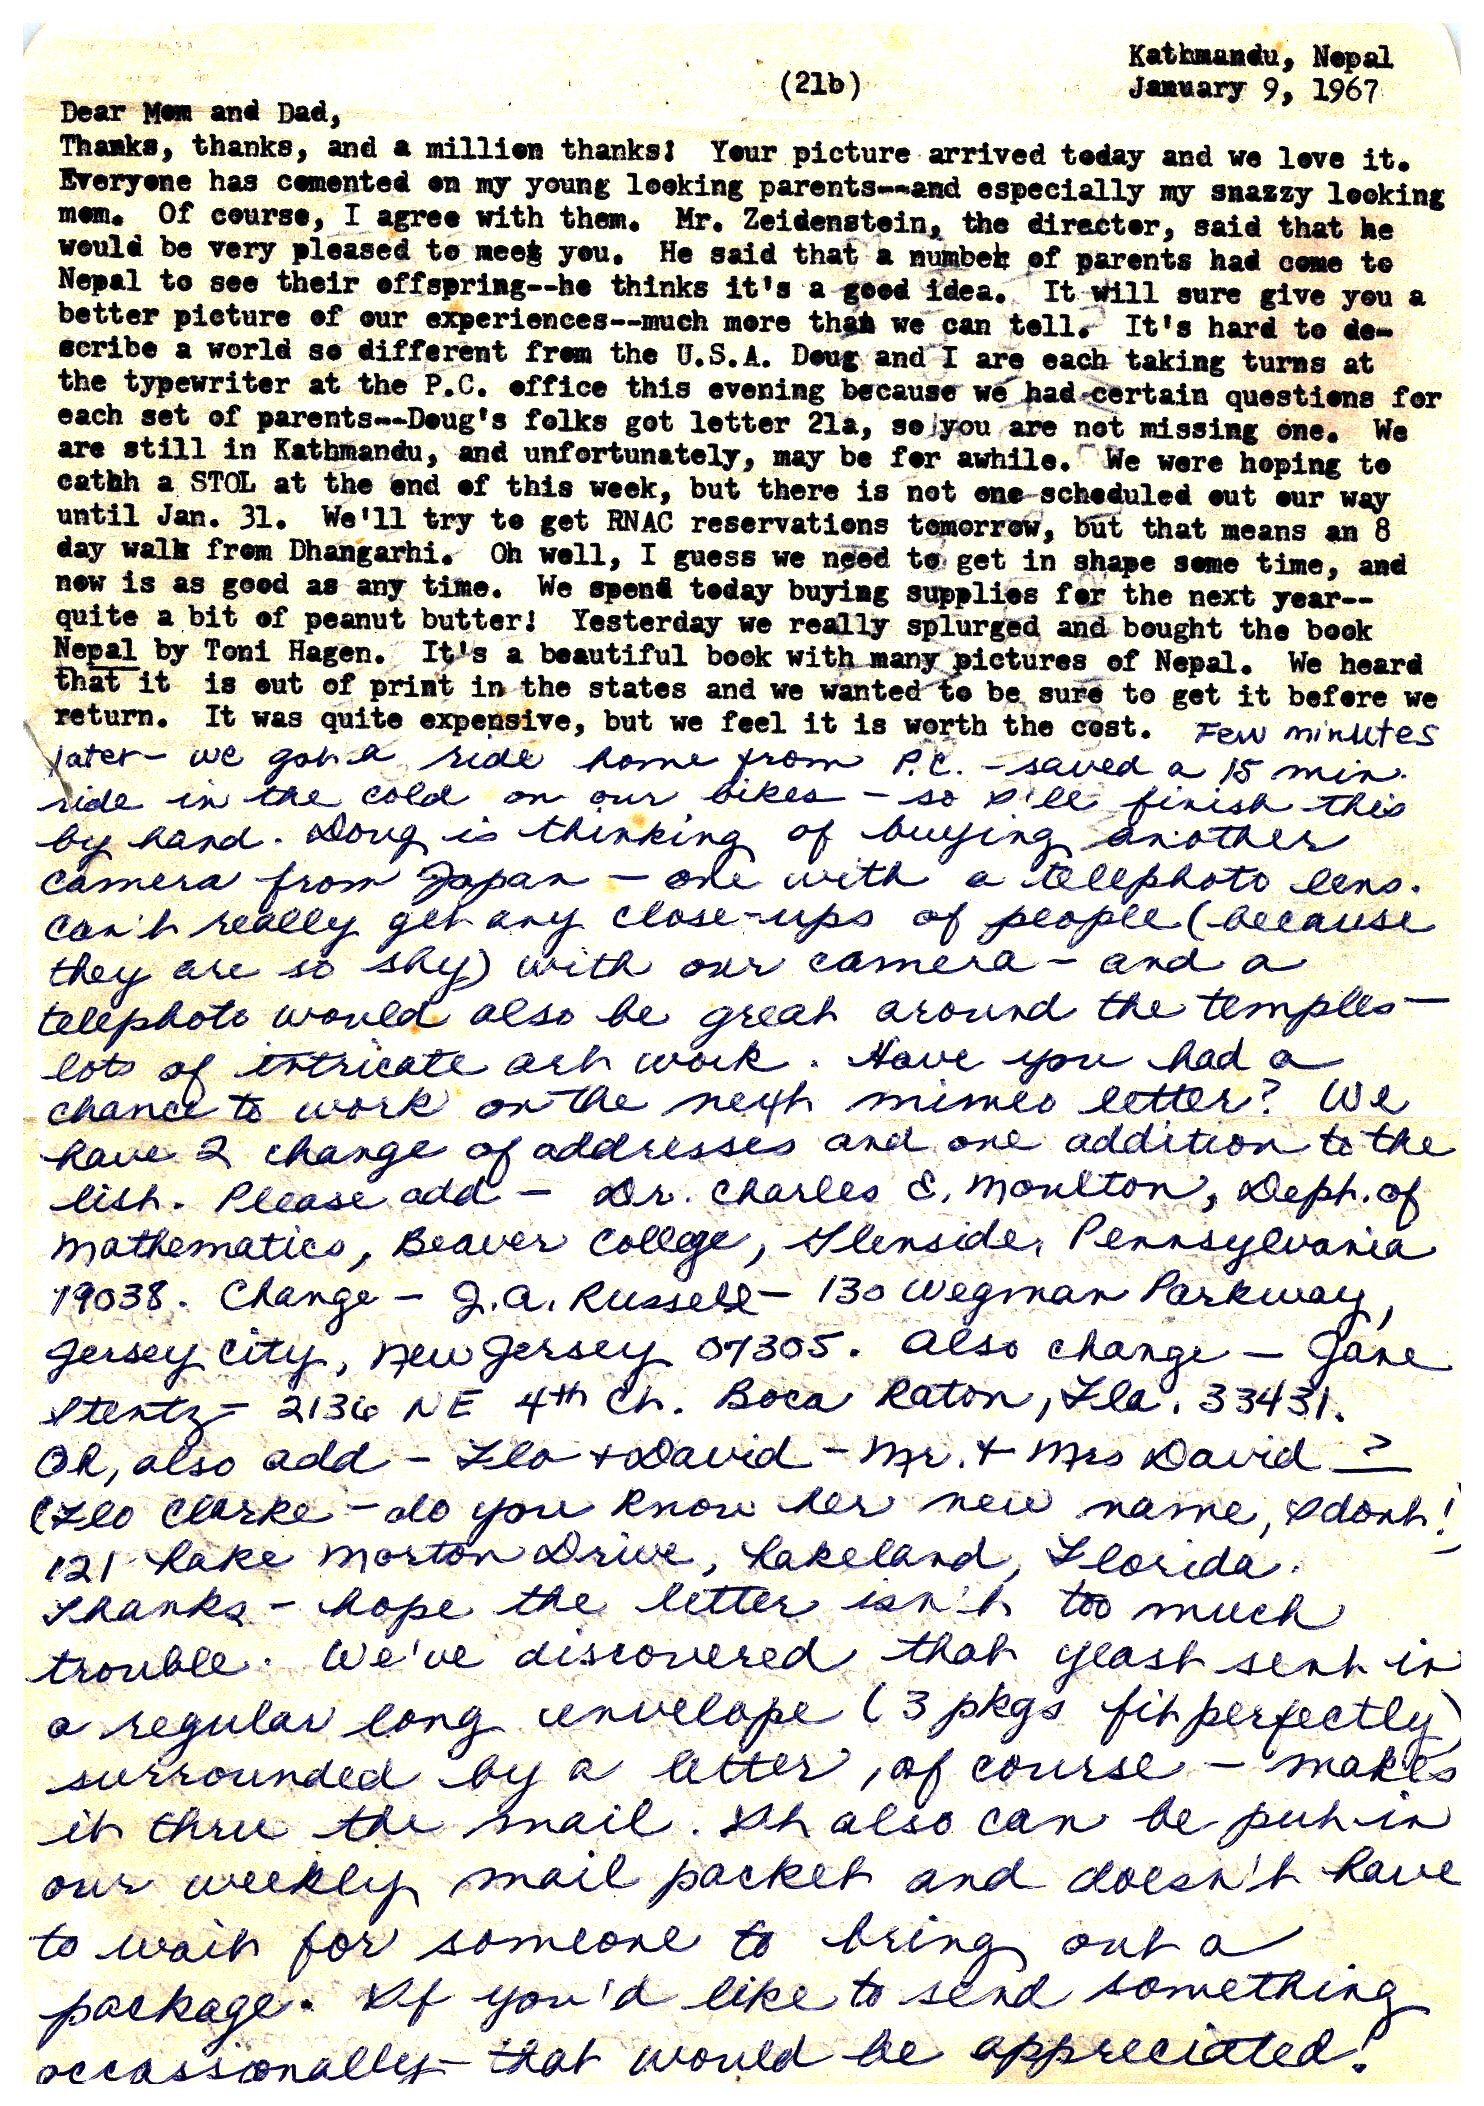 Kathmandu, Nepal
(21b)
January 9, 1967
Dear Mom and Dad,
Thanks, thanks, and a million thanks! Your picture arrived today and we love it.
Everyone has comented on my young looking parents--and especially my snazzy looking
mom. Of course, I agree with them. Mr. Zeidenstein, the director, said that he
would be very pleased to meet you. He said that a number of parents had come to
Nepal to see their offspring--he thinks it's a good idea. It will sure give you a
better picture of our experiences--much more than we can tell. It's hard to de-
scribe a world so different from the U.S.A. Doug and I are each taking turns at
the typewriter at the P.C. office this evening because we had certain questions for
each set of parents--Doug's folks got letter 21a, so you are not missing one. We
are still in Kathmandu, and unfortunately, may be for awhile. We were hoping to
cathh a STOL at the end of this week, but there is not one scheduled out our way
until Jan. 31. We'll try to get RNAC reservations tomorrow, but that means an 8
day walk from Dhangarhi. Oh well, I guess we need to get in shape some time, and
now is as good as any time. We spend today buying supplies for the next year--
quite a bit of peanut butter! Yesterday we really splurged and bought the book
Nepal by Toni Hagen. It's a beautiful book with many pictures of Nepal. We heard
that it is out of print in the states and we wanted to be sure to get it before we
return. It was quite expensive, but we feel it is worth the cost. Few minutes
later - we got a ride home from P.C. - saved a 15 min.
ride in the cold on our bikes - so I'll finish this
by hand. Doug is thinking of buying another
camera from Japan - one with a telephoto lens.
Can't really get any close-ups of people (because
they are so shy) with our camera - and a
telephoto would also be great around the temples -
lots of intricate art work. Have you had a
chance to work on the next mimeo letter? We
have 2 change of addresses and one addition to the
list. Please add - Dr. Charles E. Moulton, Dept. of
Mathematics, Beaver College, Glenside, Pennsylvania
19038. Change - J.A. Russell - 130 Wegman Parkway,
Jersey City, New Jersey 07305. Also change - Jane
Stentz - 2136 NE 4th Ct. Boca Raton, Fla. 33431.
Oh, also add - Flo + David - Mr. + Mrs David ?
(Flo Clarke - do you know her new name, I dont!)
121 Lake Morton Drive, Lakeland, Florida.
Thanks - hope the letter isn't too much
trouble. We've discovered that yeast sent in
a regular long envelope (3 pkgs fit perfectly)
surrounded by a letter, of course - makes
it thru the mail. It also can be put in
our weekly mail packet and doesn't have
to wait for someone to bring out a
package. If you'd like to send something
occassionally - that would be appreciated!